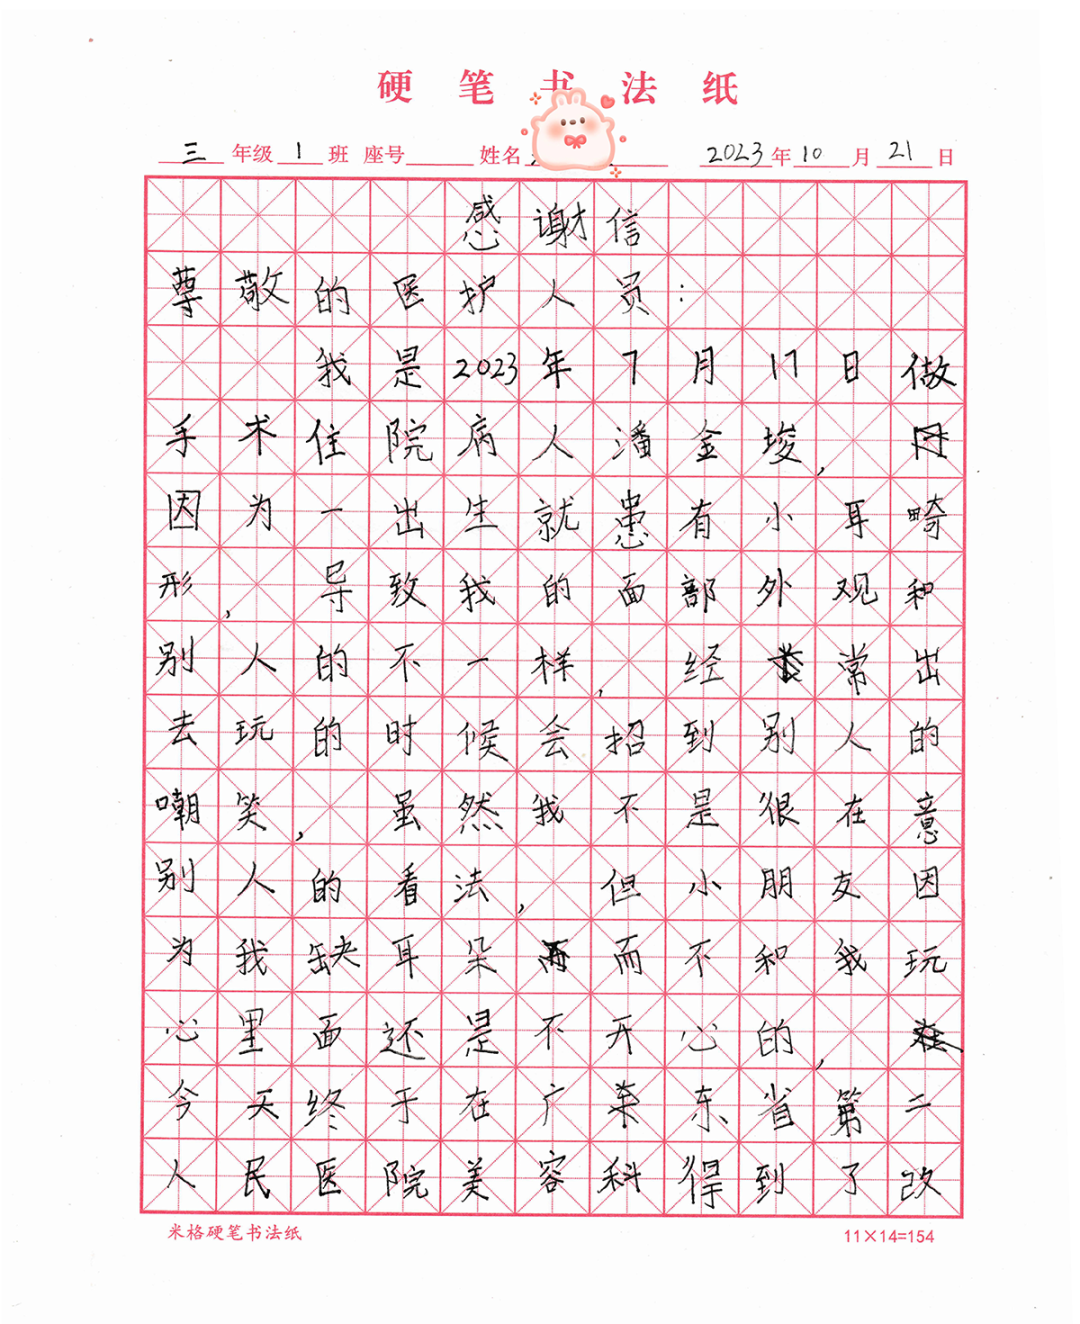 硬笔书法纸
三年级1班 座号 姓名 2023年10月21日
感谢信
尊敬的医护人员：
我是2023年7月17日做
手术住院病人潘金埈，
因为一出生就患有小耳畸
形，导致我的面部外观和
别人的不一样，经常出
去玩的时候会招到别人的
嘲笑，虽然我不是很在意
别人的看法，但小朋友因
为我缺耳朵而不和我玩
心里面还是不开心的，
今天终于在广东省第二
人民医院美容科得到了改
米格硬笔书法纸 11×14=154